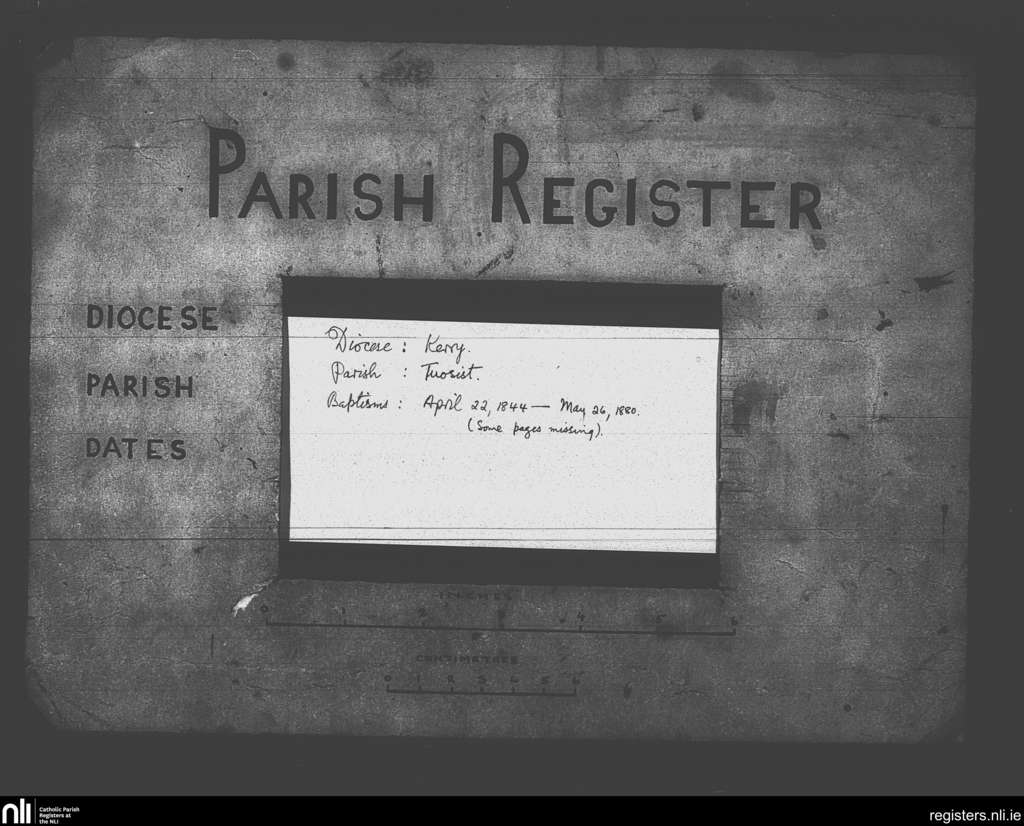 PARISH REGISTER
DIOCESE
PARISH
DATES
Diocese : Kerry.
Parish : Tuosist.
Baptisms : April 22, 1844 — May 26, 1880.
(Some pages missing).
INCHES
0 1 2 3 4 5 6
CENTIMETRES
0 1 2 3 4 5 6
nli
Catholic Parish
Registers at
the NLI
registers.nli.ie